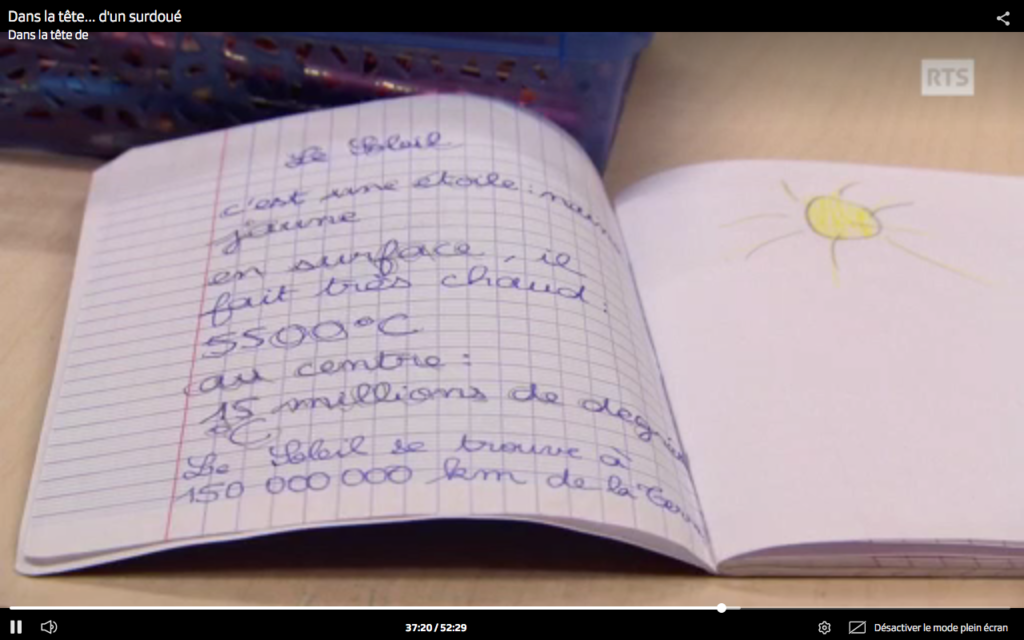 Dans la tête... d'un surdoué
Dans la tête de
RTS
Le Soleil
c'est une étoile :
jaune
en surface, il
fait très chaud :
5500°C
au centre :
15 millions de
°C
Le Soleil se trouve à
150 000 000 km de la
37:20 / 52:29
Désactiver le mode plein écran